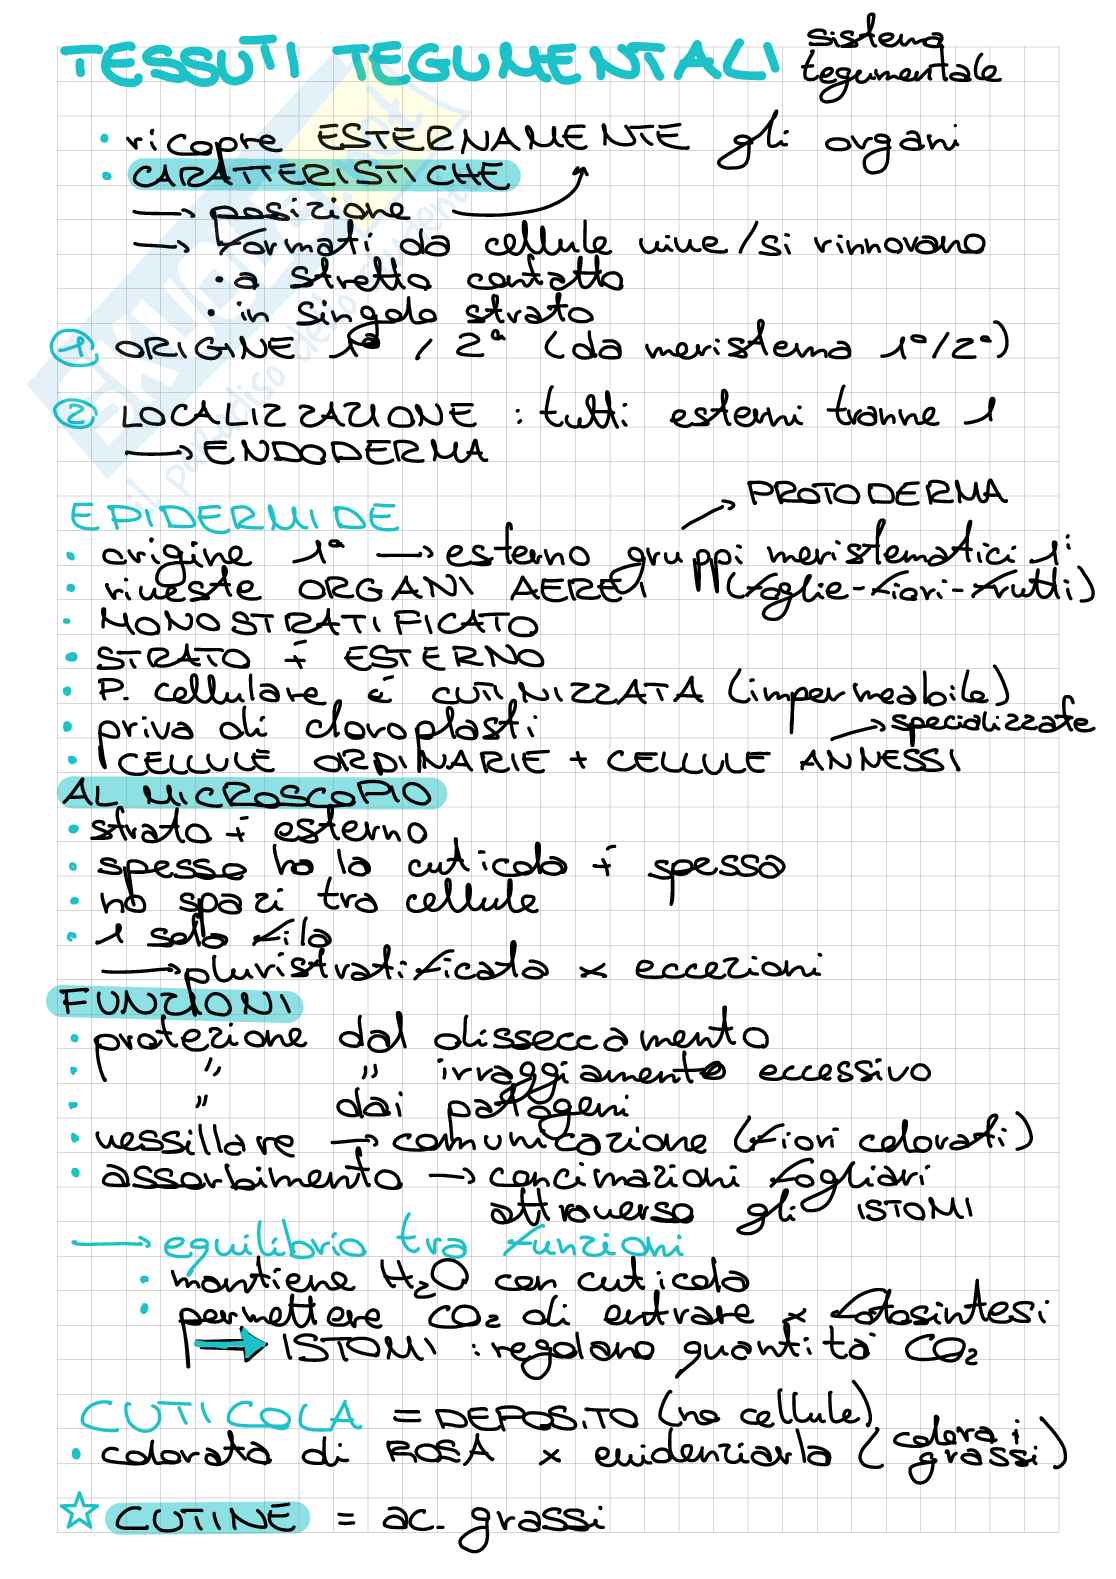 TESSUTI TEGUMENTALI sistema tegumentale
• ricopre ESTERNAMENTE gli organi
• CARATTERISTICHE
→ posizione
→ formati da cellule vive/si rinnovano
• a stretto contatto
• in singolo strato
1 ORIGINE 1ª / 2ª (da meristema 1º/2º)
2 LOCALIZZAZIONE : tutti esterni tranne 1
→ ENDODERMA
EPIDERMIDE
→ PROTODERMA
• origine 1ª → esterno gruppi meristematici 1ⁱ
• riveste ORGANI AEREI (foglie-fiori-frutti)
• MONOSTRATIFICATO
• STRATO + ESTERNO
• P. cellulare è CUTINIZZATA (impermeabile)
• priva di cloroplasti
→ specializzate
• CELLULE ORDINARIE + CELLULE ANNESSI
AL MICROSCOPIO
• strato + esterno
• spesso ho la cuticola + spessa
• no spazi tra cellule
• 1 sola fila
→ pluristratificata x eccezioni
FUNZIONI
• protezione dal disseccamento
• " " irraggiamento eccessivo
• " dai patogeni
• vessillare → comunicazione (fiori colorati)
• assorbimento → concimazioni fogliari
attraverso gli ISTOMI
→ equilibrio tra funzioni
• mantiene H₂O con cuticola
• permettere CO₂ di entrare x fotosintesi
→ ISTOMI : regolano quantità CO₂
CUTICOLA = DEPOSITO (no cellule)
• colorata di ROSA x evidenziarla (colora i grassi)
☆ CUTINE = ac. grassi